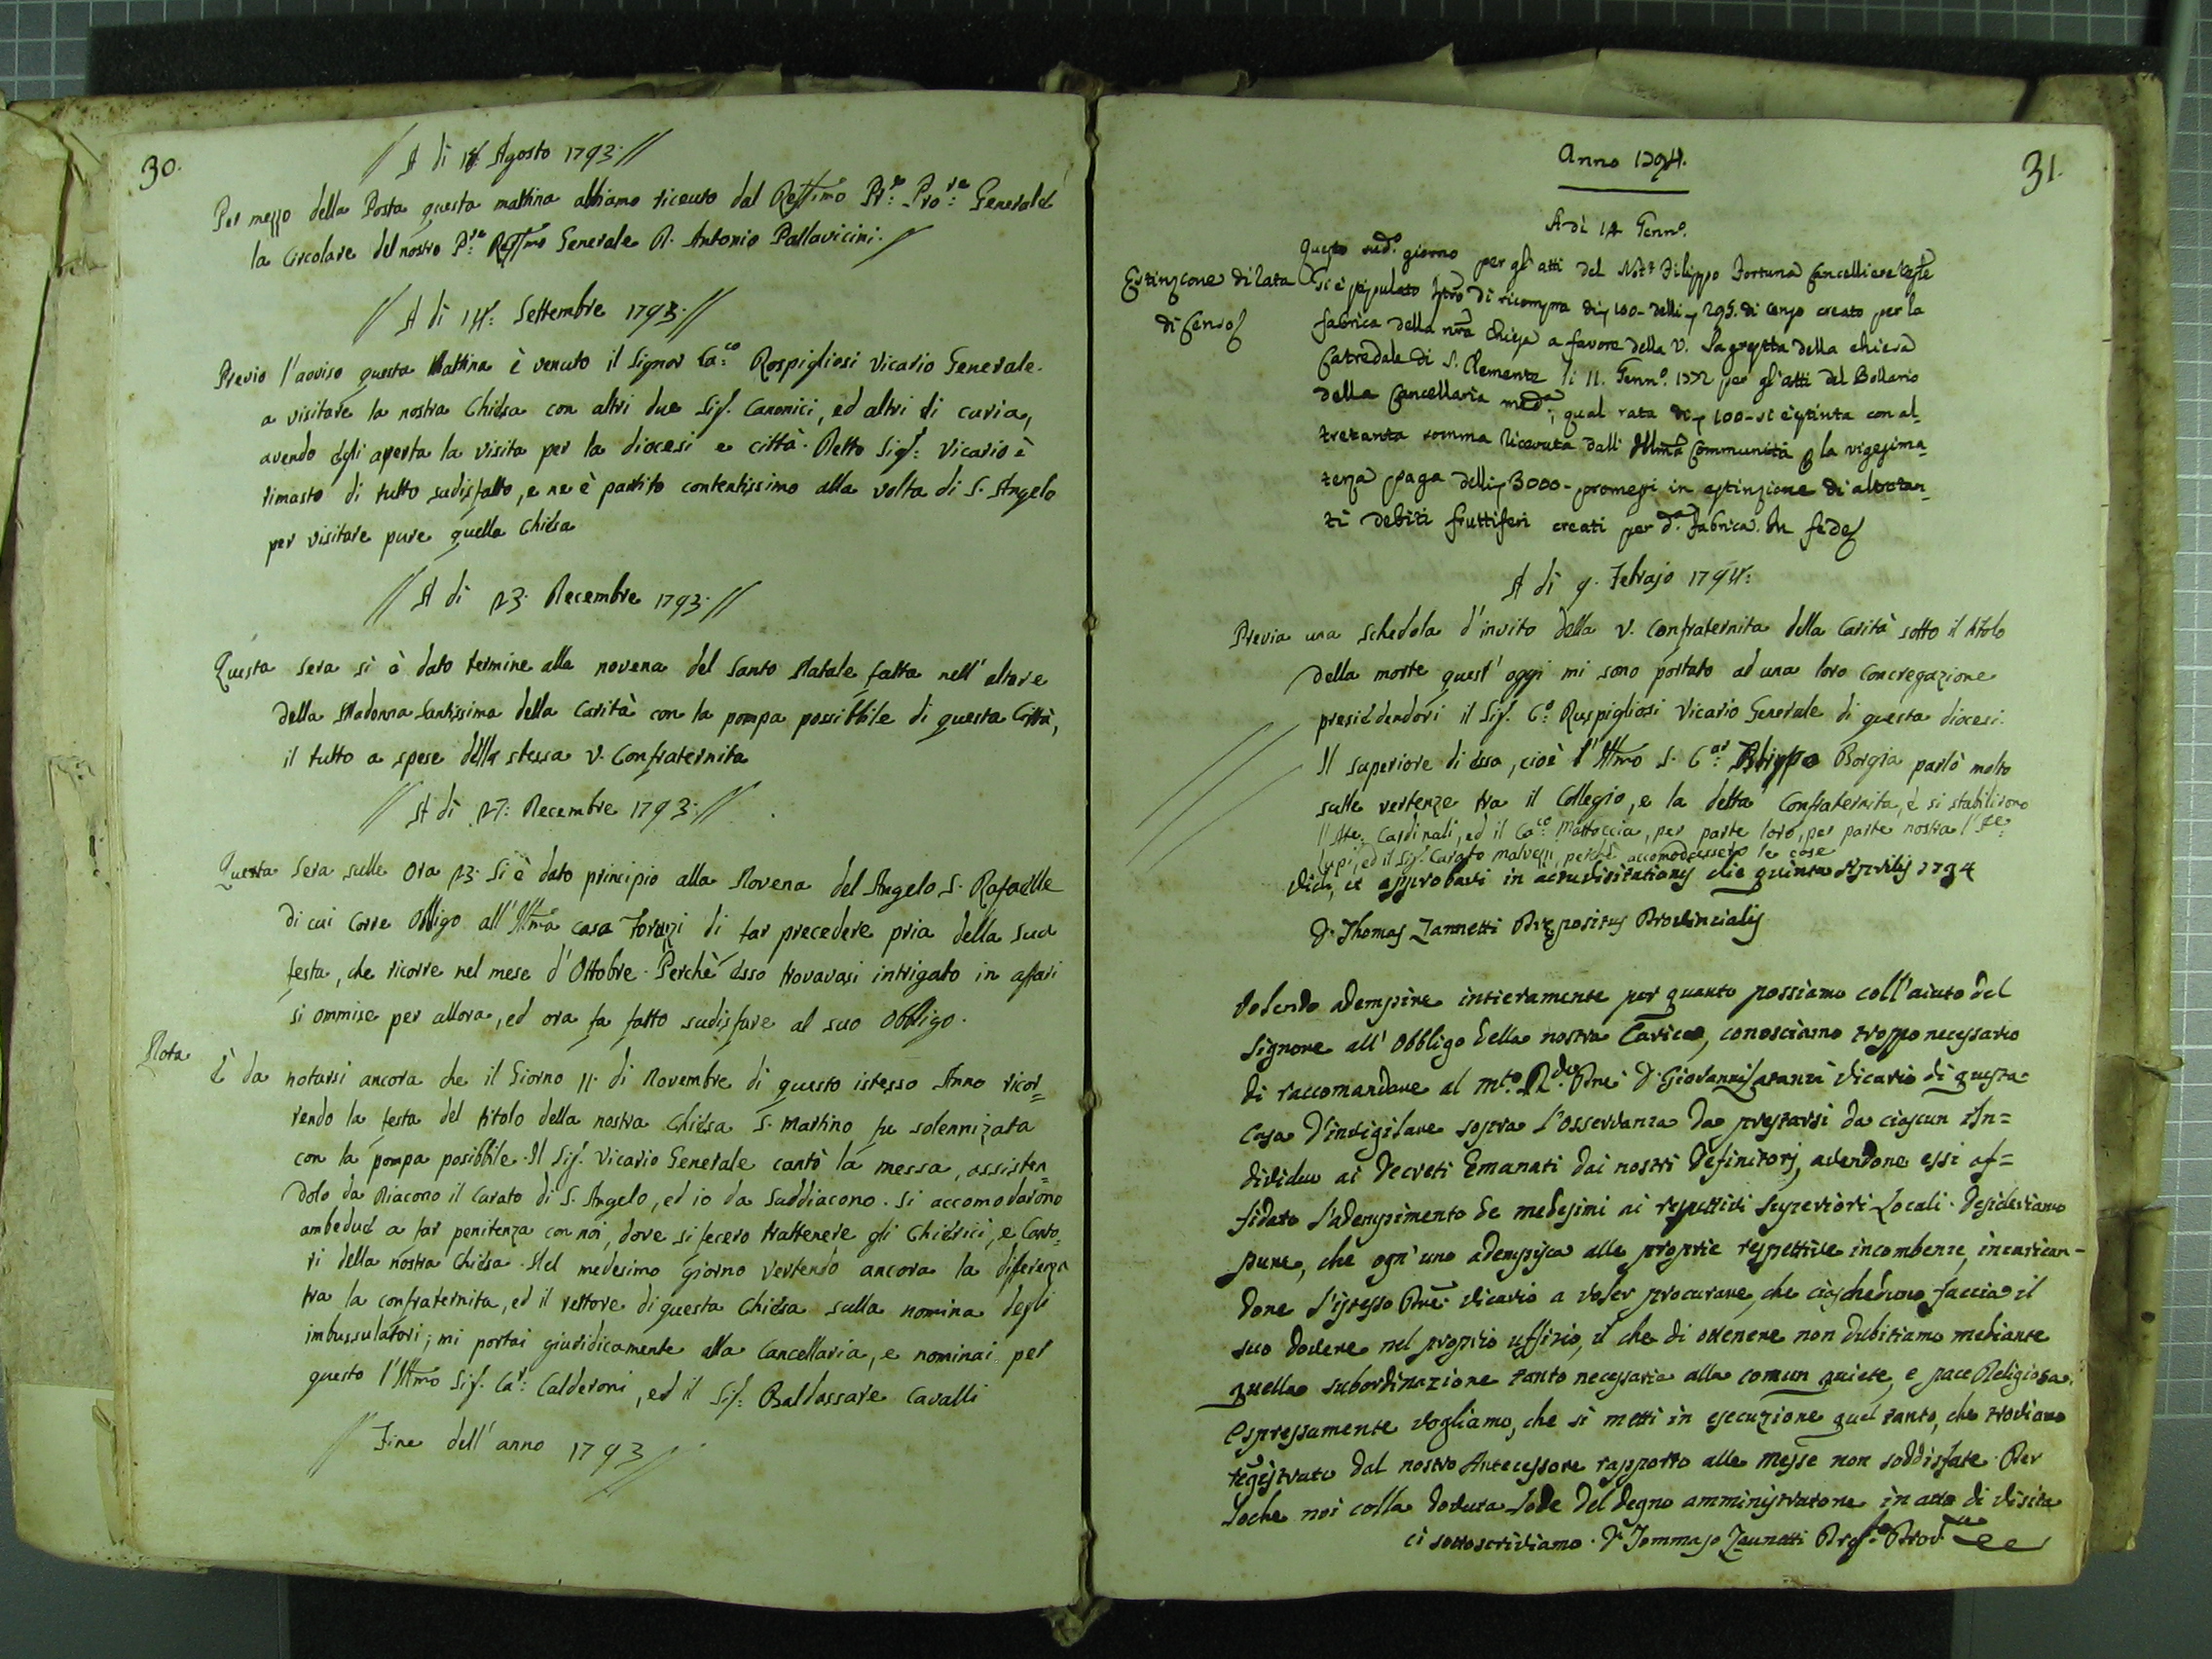 30.
// A di 18 Agosto 1793 //
Per mezzo della Posta questa mattina abbiamo ricevuto dal Ressimo Pre: Pro:re Generale
la Circolare del nostro P:re Ressmo Generale D. Antonio Pallavicini.
// A di 14: Settembre 1793: //
Previo l'avviso questa Mattina è venuto il Signor Ca:co Rospigliosi Vicario Generale
a visitare la nostra Chiesa con altri due Sig. Canonici, ed altri di curia,
avendo Egli aperta la visita per la diocesi e città. Detto Sig: Vicario è
rimasto di tutto sudisfatto, e ne è partito contentissimo alla volta di S. Angelo
per visitare pure quella Chiesa
// A di 23. Decembre 1793: //
Questa sera si è dato termine alla novena del Santo Natale fatta nell'altare
della Madonna Santissima della Carità con la pompa possibbile di questa Città,
il tutto a spese della stessa V. Confraternita
// A di 27: Decembre 1793: //
Questa Sera sulle Ora 23. Si è dato principio alla Novena del Angelo S. Rafaelle
di cui Corre Obligo all'Illma casa di far precedere pria della sua
festa, che ricorre nel mese d'Ottobre. Perchè Esso trovavasi intrigato in affari
si ommise per allora, ed ora fa fatto sudisfare al suo Obbligo.
Nota
È da notarsi ancora che il Giorno 11. di Novembre di questo istesso Anno ricor=
rendo la festa del titolo della nostra Chiesa S. Martino fu solennizata
con la pompa posibbile. Il Sig. Vicario Generale cantò la messa, assisten=
dolo da Diacono il Curato di S. Angelo, ed io da Suddiacono. Si accomodarono
ambedue a far penitenza con noi, dove si fecero trattenere gli Chierici, e Canto=
ri della nostra Chiesa. Nel medesimo giorno vertendo ancora la differenza
tra la confraternita, ed il rettore di questa Chiesa sulla nomina degli
imbussulatori; mi portai giuridicamente alla Cancellaria, e nominai pel
questo l'Illmo Sig. Ca:r Calderoni, ed il Sig: Baldassare Cavalli
// Fine dell'anno 1793 //
31.
Anno 1794.
A di 14 Genn.o
Estinzione di rata
di Censo
Questo sud.o giorno per gl'atti del Filippo Fortuna Cancelliere
si è stipulato di ricompra di 100 - delli 295. di censo creato per la
fabrica della nra chiesa a favore della V. Sagrestia della chiesa
Catredale di S. Clemente li 11. Genn.o 1772 per gl'atti del Bollario
della Cancellaria med.a; qual rata di 100 - si è estinta con al=
tretanta somma ricevuta dall'Illma Communità la vigesima=
terza paga delli 3000 - promessi in estinzione di altretan=
ti debiti fruttiferi creati per d.a fabrica. In fede
A di 9. Febrajo 1794:
Previa una schedola d'invito della V. Confraternita della Carità sotto il titolo
della morte quest'oggi mi sono portato ad una loro Concregazione
presiedendovi il Sig. C:o Ruspigliosi Vicario Generale di questa diocesi.
Il superiore di essa, cioè l'Illmo S. C:ar Borgia parlò molto
sulle vertenze tra il Collegio, e la detta Confraternita, e si stabilirono
l' Cardinali, ed il Ca:co Mattoccia, per parte loro, per parte nostra l'
Lupi, ed il Sig. Curato Malvezzi, perchè accomodassero le cose
Vidi, et approbavi in actu visitationis die quinta Aprilis 1794
D. Thomas Zannetti Præpositus Provincialis
Volendo adempire intieramente per quanto possiamo coll'aiuto del
Signore all'Obbligo della nostra Carica, conosciamo troppo necessario
di raccomandare al m.to R.do Pre D. Giovanni Vicario di questa
Casa d'invigilare sopra l'Osservanza da prestarsi da ciascun In=
dividuo ai Decreti Emanati dai nostri Definitorj, avendone essi af=
fidato l'adempimento de medesimi ai respettivi Superiori Locali. Desideriamo
pure, che ogn'uno adempisca alle proprie respettive incombenze, incarican=
done l'istesso Pre Vicario a voler procurare, che ciascheduno faccia il
suo dovere nel proprio uffizio, il che di ottenere non dubitiamo mediante
quella subordinazione tanto necessaria alla comun quiete, e pace Religiosa.
Espressamente vogliamo, che si metti in esecuzione quel tanto, che troviamo
registrato dal nostro Antecessore rapporto alle Messe non soddisfate. Per
loche noi colla dovuta lode del degno amministratore in atto di visita
ci sottoscriviamo. D. Tommaso Zannetti Prep.to Prov.le